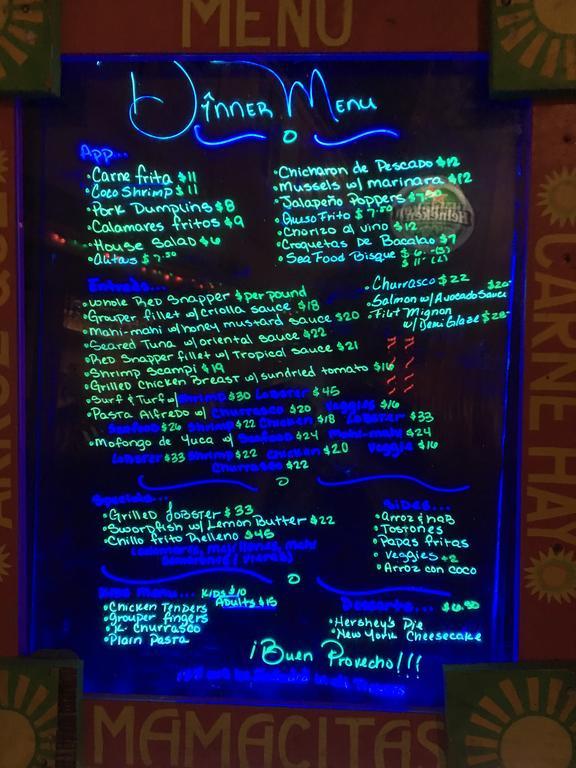 MENU
Dinner Menu
App...
• Carne frita $11
• Coco Shrimp $11
• Pork Dumplins $8
• Calamares fritos $9
• House Salad $6
• Alitas $7.50
• Chicharon de Pescado $12
• Mussels w/ marinara $12
• Jalapeño Poppers $7.50
• Queso Frito $7.50
• Chorizo al vino $12
• Croquetas De Bacalao $9
• Sea Food Bisque $6
Heineken
Entrees...
• Whole Red Snapper $ per pound
• Grouper fillet w/ criolla sauce $18
• Mahi-mahi w/ honey mustard sauce $20
• Seared Tuna w/ oriental sauce $22
• Red Snapper fillet w/ Tropical sauce $21
• Shrimp Scampi $19
• Grilled Chicken Breast w/ sundried tomato $16
• Surf & Turf w/ Shrimp $30 Lobster $45
• Pasta Alfredo w/ Churrasco $20 Veggies $16
Seafood $26 Shrimp $22 Chicken $18 Lobster $33
• Mofongo de Yuca w/ Seafood $24 Mahi-mahi $24
Lobster $33 Shrimp $22 Chicken $20 Veggie $16
Churrasco $22
• Churrasco $22
• Salmon w/ Avocado Sauce $20
• Filet Mignon
w/ Demi Glaze $28
Specials...
• Grilled Lobster $33
• Swordfish w/ Lemon Butter $22
• Chillo frito Relleno $45
Sides...
• Arroz & hab
• Tostones
• Papas fritas
• Veggies +2
• Arroz con coco
Kids Menu... Kids $10
Adults $15
• Chicken Tenders
• Grouper fingers
• K. Churrasco
• Plain Pasta
Desserts... $6.50
• Hershey's Pie
• New York Cheesecake
¡Buen Provecho!!!
MAMACITAS
CARNE HAY